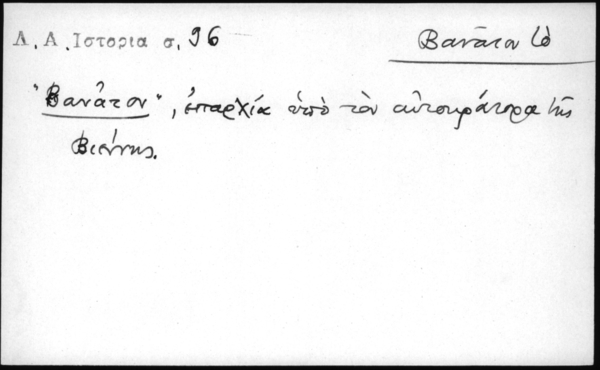 Λ. Α. Ιστορια σ. 96
Βανᾶτον τὸ
"Βανᾶτον", ἐπαρχία ὑπὸ τὸν αὐτοκράτορα τῆς
Βιέννης.